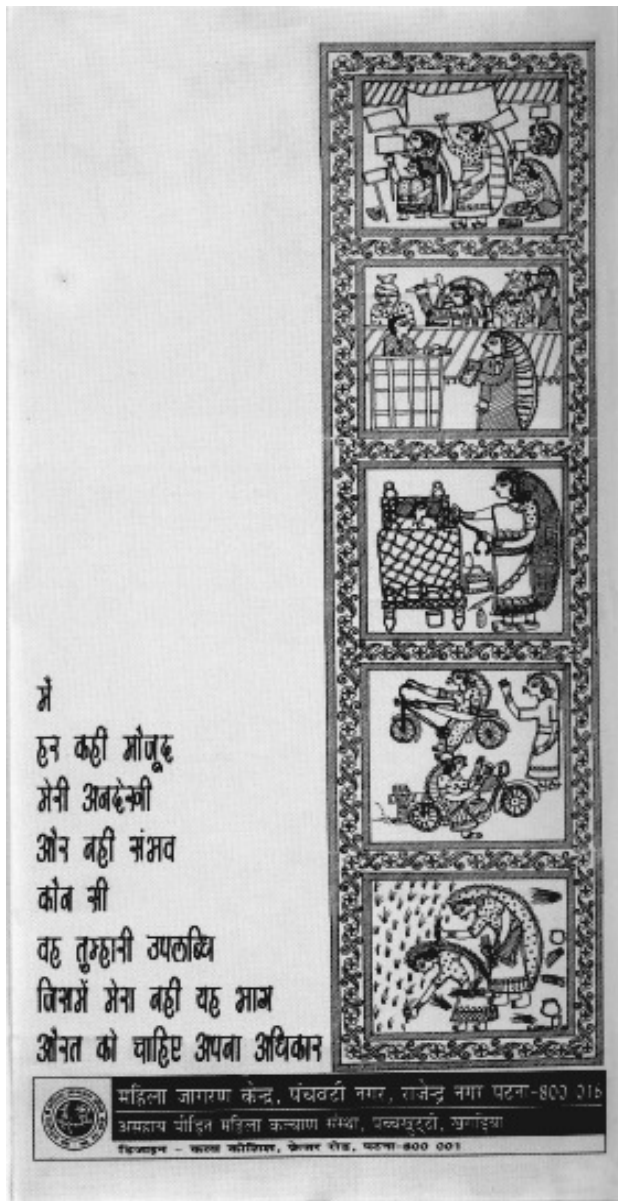 में
हर कहीं मौजूद
मेरी अनदेखी
और नहीं संभव
कौन सी
वह तुम्हारी उपलब्धि
जिसमें मेरा नहीं यह भाग
औरत को चाहिए अपना अधिकार
महिला जागरण केन्द्र, पंचवटी नगर, राजेन्द्र नगर पटना-800 016
असहाय पीड़ित महिला कल्याण संस्था,
डिजाइन - कला कोशिश, फ्रेजर रोड, पटना-800 001